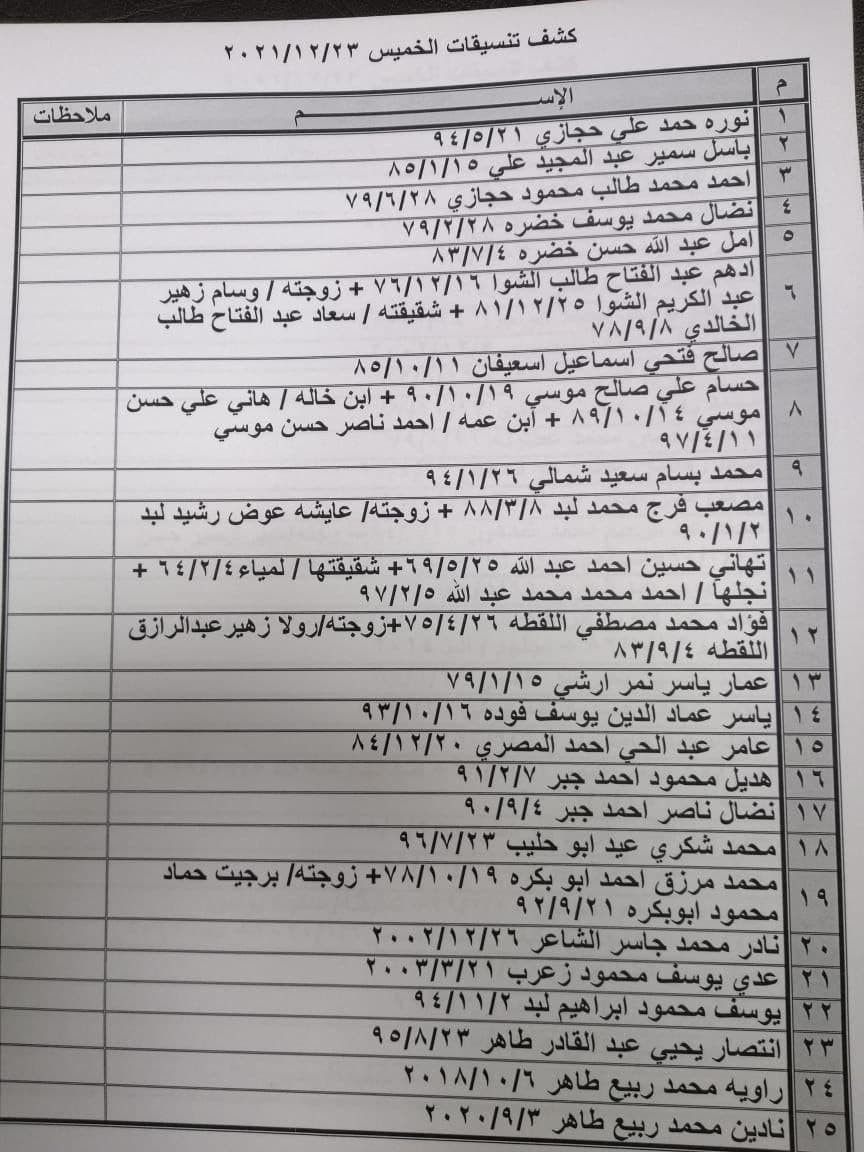 كشف تنسيقات الخميس ٢٠٢١/١٢/٢٣
م الإســـــــــــم ملاحظات
١ نوره حمد علي حجازي ٩٤/٥/٢١
٢ باسل سمير عبد المجيد علي ٨٥/١/١٥
٣ احمد محمد طالب محمود حجازي ٧٩/٦/٢٨
٤ نضال محمد يوسف خضره ٧٩/٢/٢٨
٥ امل عبد الله حسن خضره ٨٣/٧/٤
٦ ادهم عبد الفتاح طالب الشوا ٧٦/١٢/١٦ + زوجته / وسام زهير
عبد الكريم الشوا ٨١/١٢/٢٥ + شقيقته / سعاد عبد الفتاح طالب
الخالدي ٧٨/٩/٨
٧ صالح فتحي اسماعيل اسعيفان ٨٥/١٠/١١
٨ حسام علي صالح موسي ٩٠/١٠/١٩ + ابن خاله / هاني علي حسن
موسي ٨٩/١٠/١٤ + ابن عمه / احمد ناصر حسن موسي
٩٧/٤/١١
٩ محمد بسام سعيد شمالي ٩٤/١/٢٦
١٠ مصعب فرج محمد لبد ٨٨/٣/٨ + زوجته/ عايشه عوض رشيد لبد
٩٠/١/٢
١١ تهاني حسين احمد عبد الله ٦٩/٥/٢٥+ شقيقتها / لمياء٦٤/٢/٤ +
نجلها / احمد محمد محمد عبد الله ٩٧/٢/٥
١٢ فؤاد محمد مصطفي اللقطه ٧٥/٤/٢٦+زوجته/رولا زهيرعبدالرازق
اللقطه ٨٣/٩/٤
١٣ عمار ياسر نمر ارشي ٧٩/١/١٥
١٤ ياسر عماد الدين يوسف فوده ٩٣/١٠/١٦
١٥ عامر عبد الحي احمد المصري ٨٤/١٢/٢٠
١٦ هديل محمود احمد جبر ٩١/٢/٧
١٧ نضال ناصر احمد جبر ٩٠/٩/٤
١٨ محمد شكري عيد ابو حليب ٩٦/٧/٢٣
١٩ محمد مرزق احمد ابو بكره ٧٨/١٠/١٩+ زوجته/ برجيت حماد
محمود ابوبكره ٩٢/٩/٢١
٢٠ نادر محمد جاسر الشاعر ٢٠٠٢/١٢/٢٦
٢١ عدي يوسف محمود زعرب ٢٠٠٣/٣/٢١
٢٢ يوسف محمود ابراهيم لبد ٩٤/١١/٢
٢٣ انتصار يحيي عبد القادر طاهر ٩٥/٨/٢٣
٢٤ راويه محمد ربيع طاهر ٢٠١٨/١٠/٦
٢٥ نادين محمد ربيع طاهر ٢٠٢٠/٩/٣